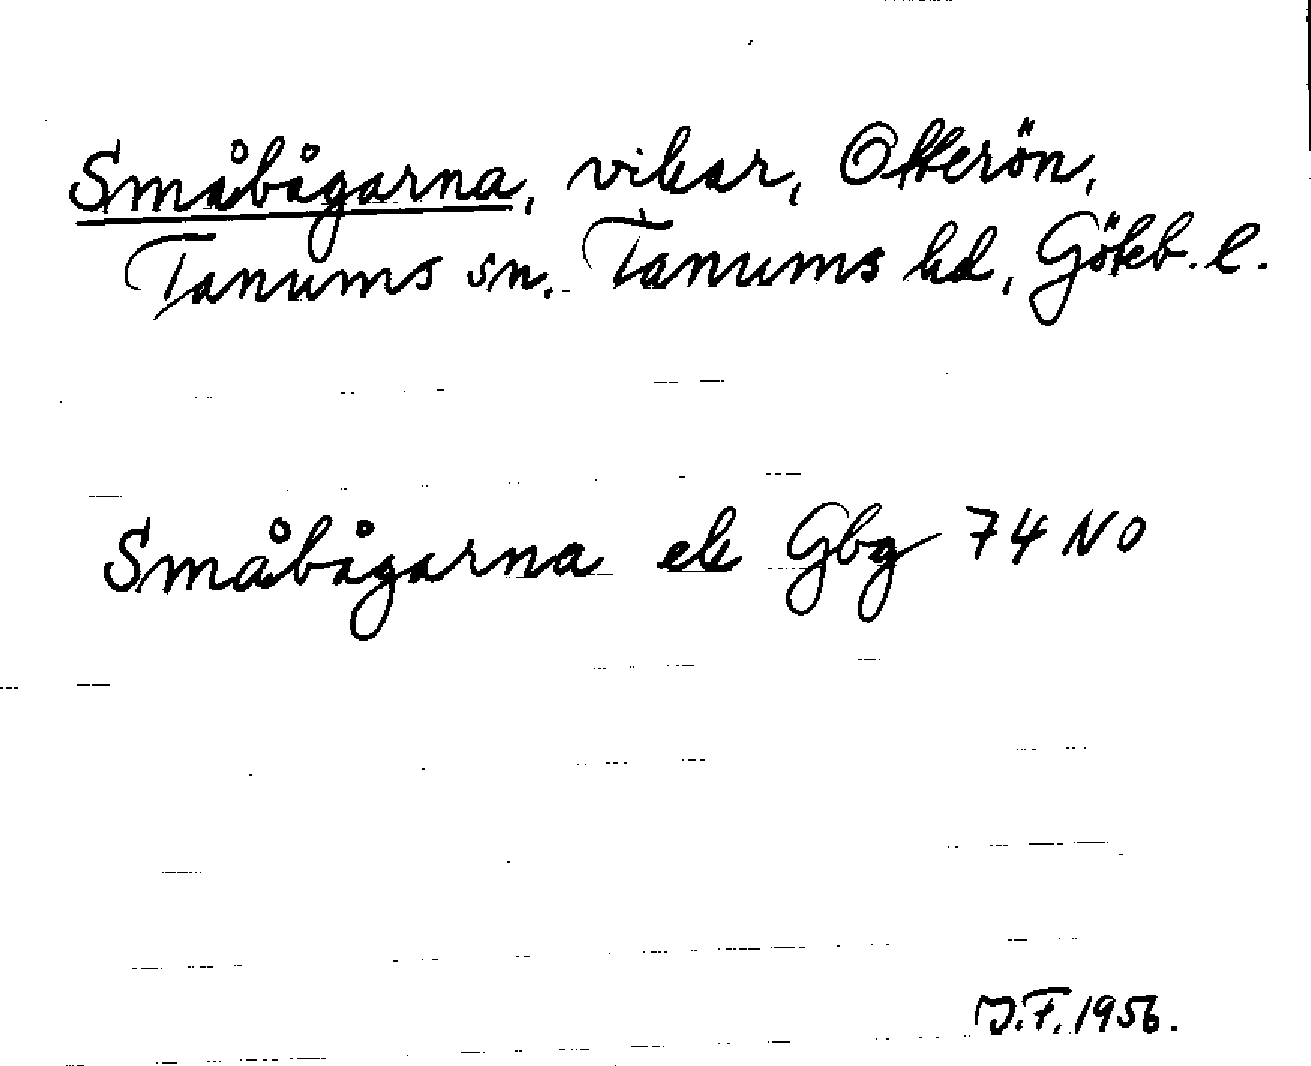 Småbågarna, vikar, Otterön,
Tanums sn. Tanums hd, Göteb. l.
Småbågarna ek Gbg 74 NO
J.F. 1956.